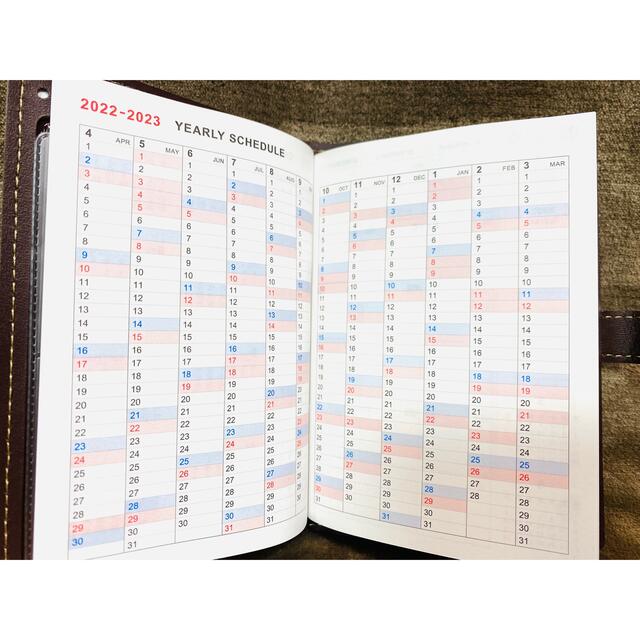 2022-2023 YEARLY SCHEDULE
4 APR 5 MAY 6 JUN 7 JUL 8 AUG 9
1 1 1 1 1 1
2 2 2 2 2 2
3 3 3 3 3 3
4 4 4 4 4 4
5 5 5 5 5 5
6 6 6 6 6 6
7 7 7 7 7 7
8 8 8 8 8 8
9 9 9 9 9 9
10 10 10 10 10 10
11 11 11 11 11 11
12 12 12 12 12 12
13 13 13 13 13 13
14 14 14 14 14 14
15 15 15 15 15 15
16 16 16 16 16 16
17 17 17 17 17 17
18 18 18 18 18 18
19 19 19 19 19 19
20 20 20 20 20 20
21 21 21 21 21 21
22 22 22 22 22 22
23 23 23 23 23 23
24 24 24 24 24 24
25 25 25 25 25 25
26 26 26 26 26 26
27 27 27 27 27 27
28 28 28 28 28 28
29 29 29 29 29 29
30 30 30 30 30 30
31 31 31
10 OCT 11 NOV 12 DEC 1 JAN 2 FEB 3 MAR
1 1 1 1 1 1
2 2 2 2 2 2
3 3 3 3 3 3
4 4 4 4 4 4
5 5 5 5 5 5
6 6 6 6 6 6
7 7 7 7 7 7
8 8 8 8 8 8
9 9 9 9 9 9
10 10 10 10 10 10
11 11 11 11 11 11
12 12 12 12 12 12
13 13 13 13 13 13
14 14 14 14 14 14
15 15 15 15 15 15
16 16 16 16 16 16
17 17 17 17 17 17
18 18 18 18 18 18
19 19 19 19 19 19
20 20 20 20 20 20
21 21 21 21 21 21
22 22 22 22 22 22
23 23 23 23 23 23
24 24 24 24 24 24
25 25 25 25 25 25
26 26 26 26 26 26
27 27 27 27 27 27
28 28 28 28 28 28
29 29 29 29 29
30 30 30 30 30
31 31 31 31